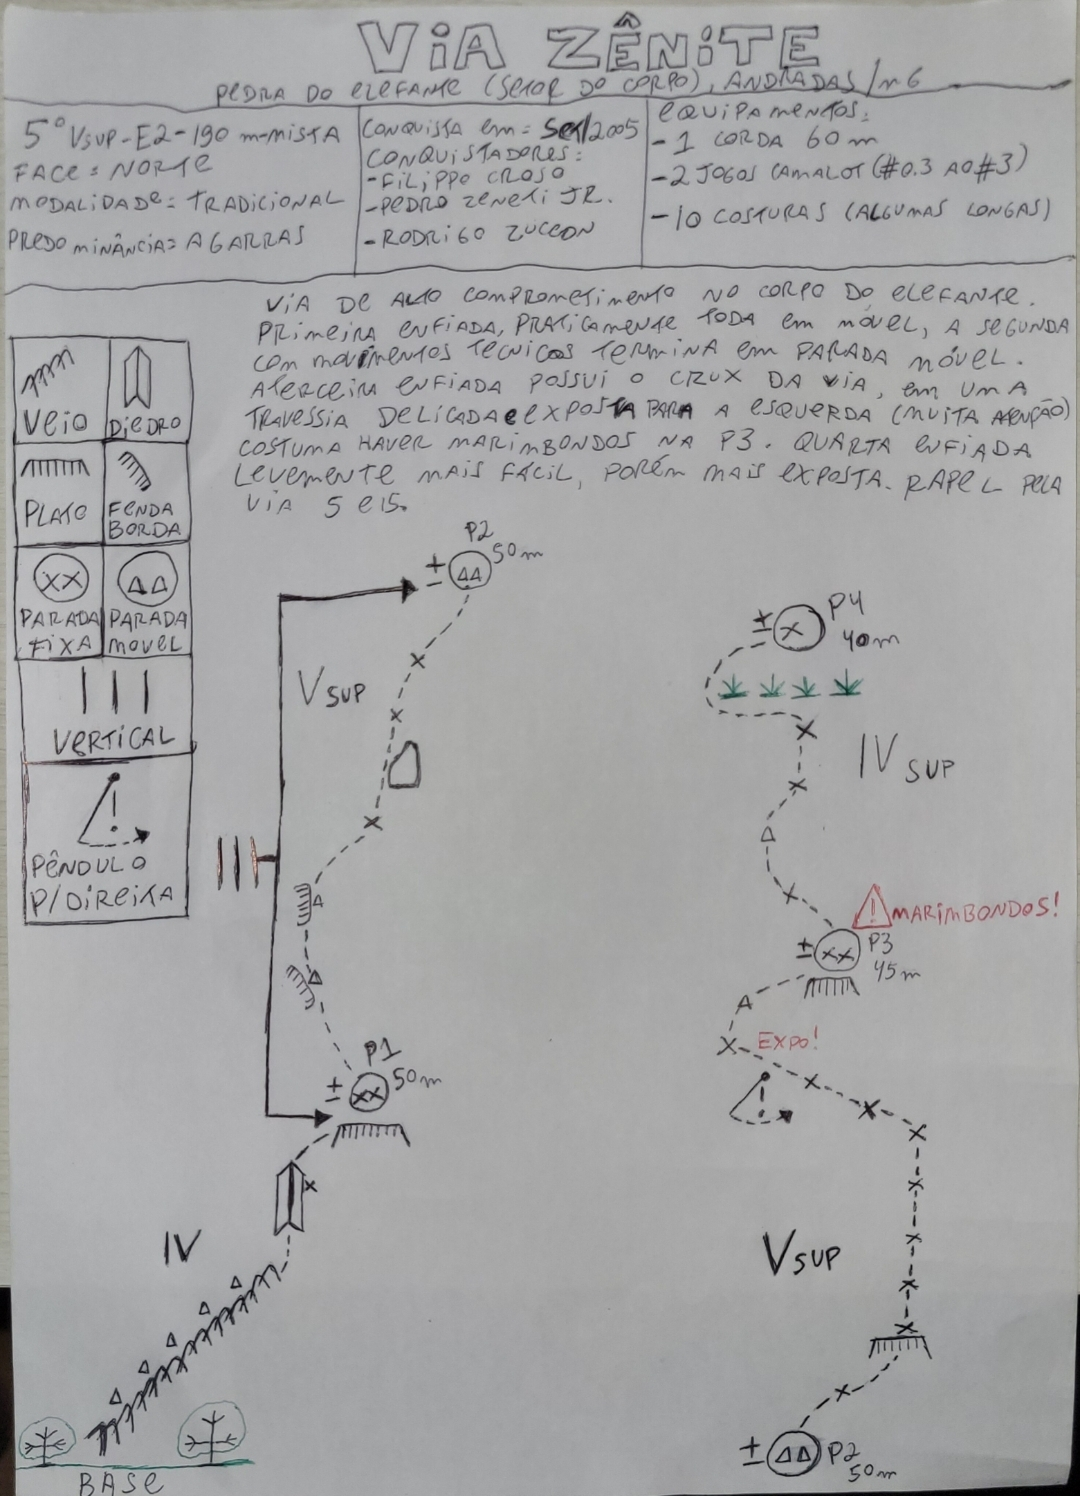 VIA ZÊNITE
PEDRA DO ELEFANTE (SETOR DO CORPO), ANDRADAS/MG
5º VSUP-E2-190 m-MISTA
FACE: NORTE
MODALIDADE: TRADICIONAL
PREDOMINÂNCIA: AGARRAS
CONQUISTA EM: SET/2005
CONQUISTADORES:
-FILIPPO CROSO
-PEDRO ZENETI JR.
-RODRIGO ZUCCON
EQUIPAMENTOS:
- 1 CORDA 60 m
- 2 JOGOS CAMALOT (#0.3 AO #3)
- 10 COSTURAS (ALGUMAS LONGAS)
VIA DE ALTO COMPROMETIMENTO NO CORPO DO ELEFANTE.
PRIMEIRA ENFIADA, PRATICAMENTE TODA EM MÓVEL, A SEGUNDA
COM MOVIMENTOS TÉCNICOS TERMINA EM PARADA MÓVEL.
A TERCEIRA ENFIADA POSSUI O CRUX DA VIA, EM UMA
TRAVESSIA DELICADA E EXPOSTA PARA A ESQUERDA (MUITA ATENÇÃO)
COSTUMA HAVER MARIMBONDOS NA P3. QUARTA ENFIADA
LEVEMENTE MAIS FÁCIL, PORÉM MAIS EXPOSTA. RAPEL PELA
VIA 5 E 15.
VEIO
DIEDRO
PLATO
FENDA
BORDA
PARADA
FIXA
PARADA
MOVEL
VERTICAL
PÊNDULO
P/DIREITA
P2
50m
VSUP
P1
50m
IV
BASE
P4
40m
IVSUP
MARIMBONDOS!
P3
45m
EXPO!
VSUP
P2
50m